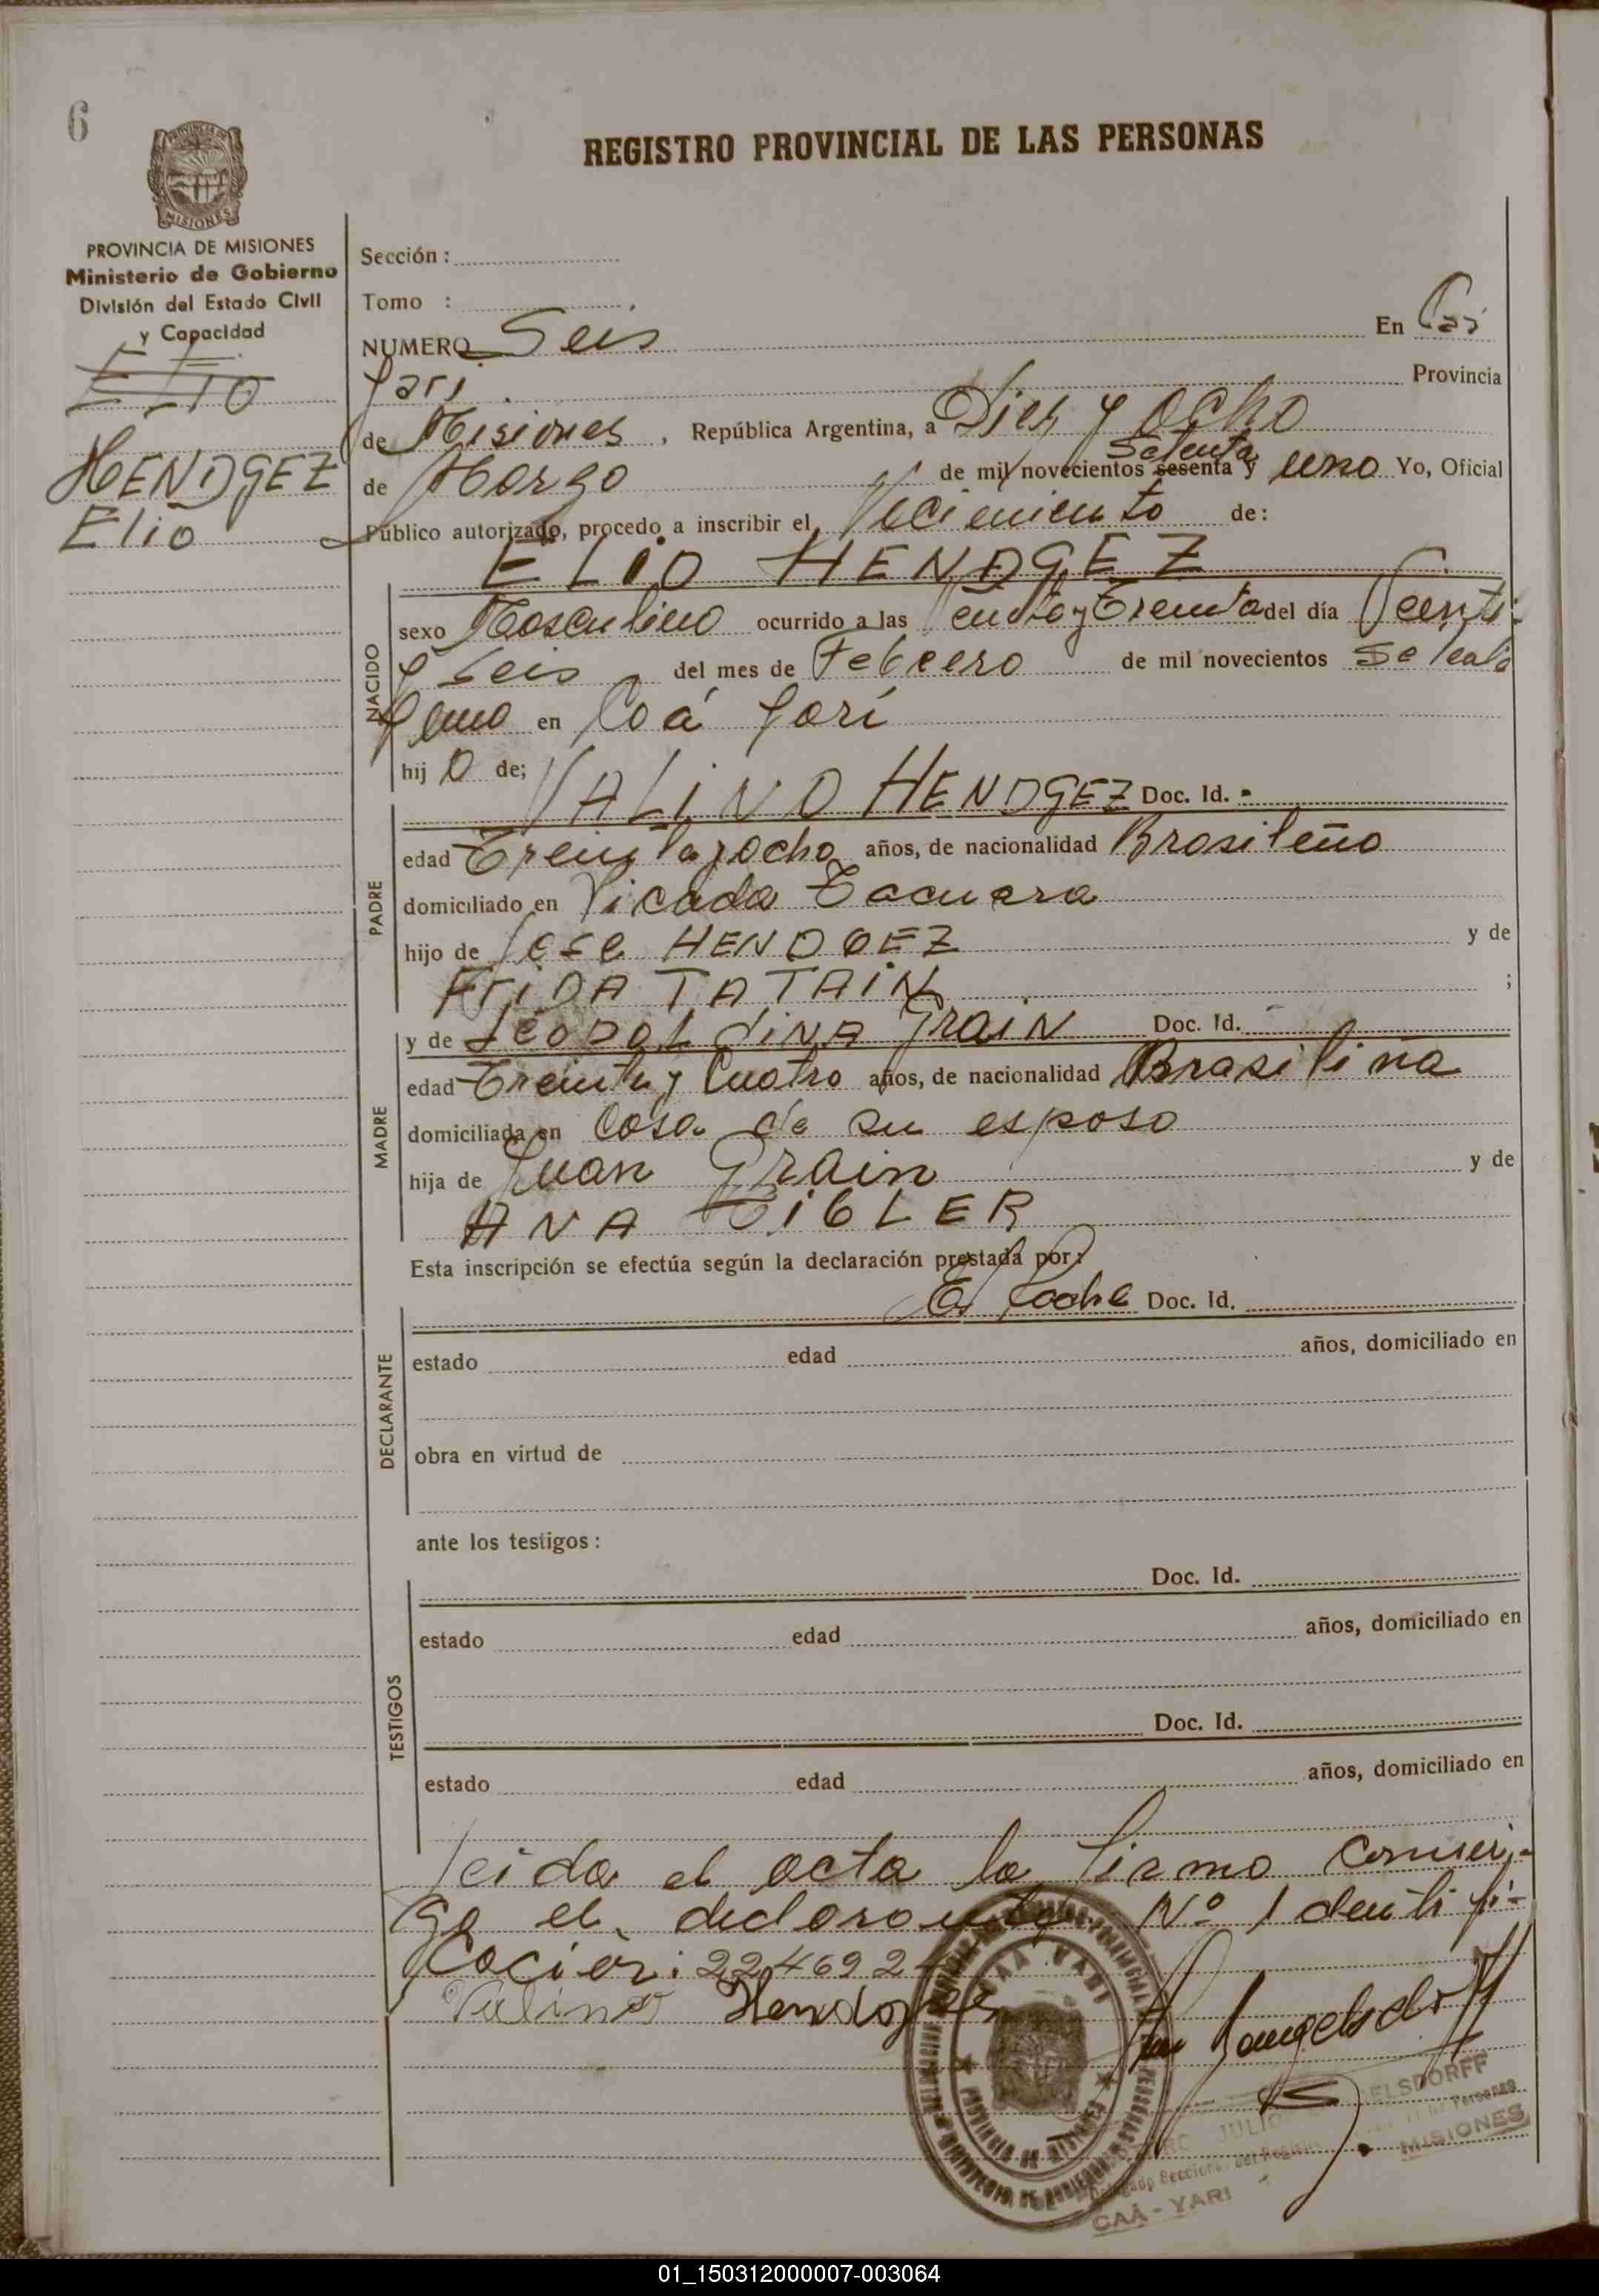 6
REGISTRO PROVINCIAL DE LAS PERSONAS
PROVINCIA DE MISIONES
Ministerio de Gobierno
División del Estado Civil
y Capacidad
ELIO
HENDGEZ
Elio
Sección :
Tomo :
NUMERO Seis En Caá
Yari Provincia
de Misiones , República Argentina, a Diez y ocho
Setenta
de Marzo de mil novecientos sesenta y uno Yo, Oficial
Público autorizado, procedo a inscribir el Nacimiento de:
ELIO HENDGEZ
NACIDO
sexo Masculino ocurrido a las Veinte y Treinta del día Veinti
y Seis del mes de Febrero de mil novecientos Setenta
y uno en Caá Yarí
hij o de;
PADRE
VALINO HENDGEZ Doc. Id.
edad Treinta y ocho años, de nacionalidad Brasileño
domiciliado en Picada Tacuara
hijo de Jose HENDGEZ y de
FRIDA TATAIN ;
MADRE
y de LEOPOLDINA GRAIN Doc. Id.
edad Treinta y Cuatro años, de nacionalidad Brasiliña
domiciliada en Casa de su esposo
hija de Juan Grain y de
ANA
Esta inscripción se efectúa según la declaración prestada por:
DECLARANTE
El Padre Doc. Id.
estado edad años, domiciliado en
obra en virtud de
ante los testigos :
TESTIGOS
Doc. Id.
estado edad años, domiciliado en
Doc. Id.
estado edad años, domiciliado en
Leida el acta la firma conmi-
go el declarante Nº Identifi-
cación: 224692
Valino Hendgez
CAA YARI
PROVINCIA DE MISIONES
MINISTERIO DE GOBIERNO
JULIO ELSDORFF
MISIONES
CAÁ - YARI
01_150312000007-003064